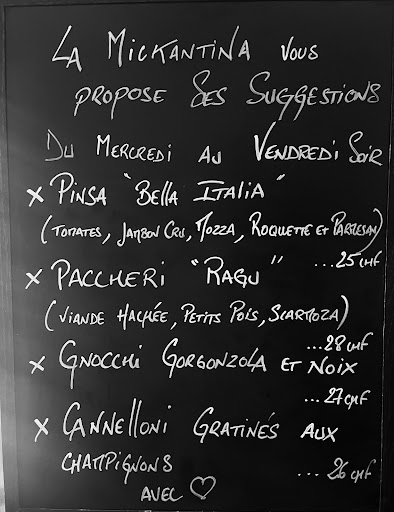 La Mickantina vous
propose ses suggestions
Du Mercredi au Vendredi Soir
x Pinsa "Bella Italia"
(Tomates, Jambon Cru, Mozza, Roquette et Parmesan)
...25 CHF
x Paccheri "Ragu"
(Viande Hachée, Petits Pois, Scarmoza)
...28 CHF
x Gnocchi Gorgonzola et Noix
...27 CHF
x Cannelloni Gratinés aux
champignons ...26 CHF
avec ♡